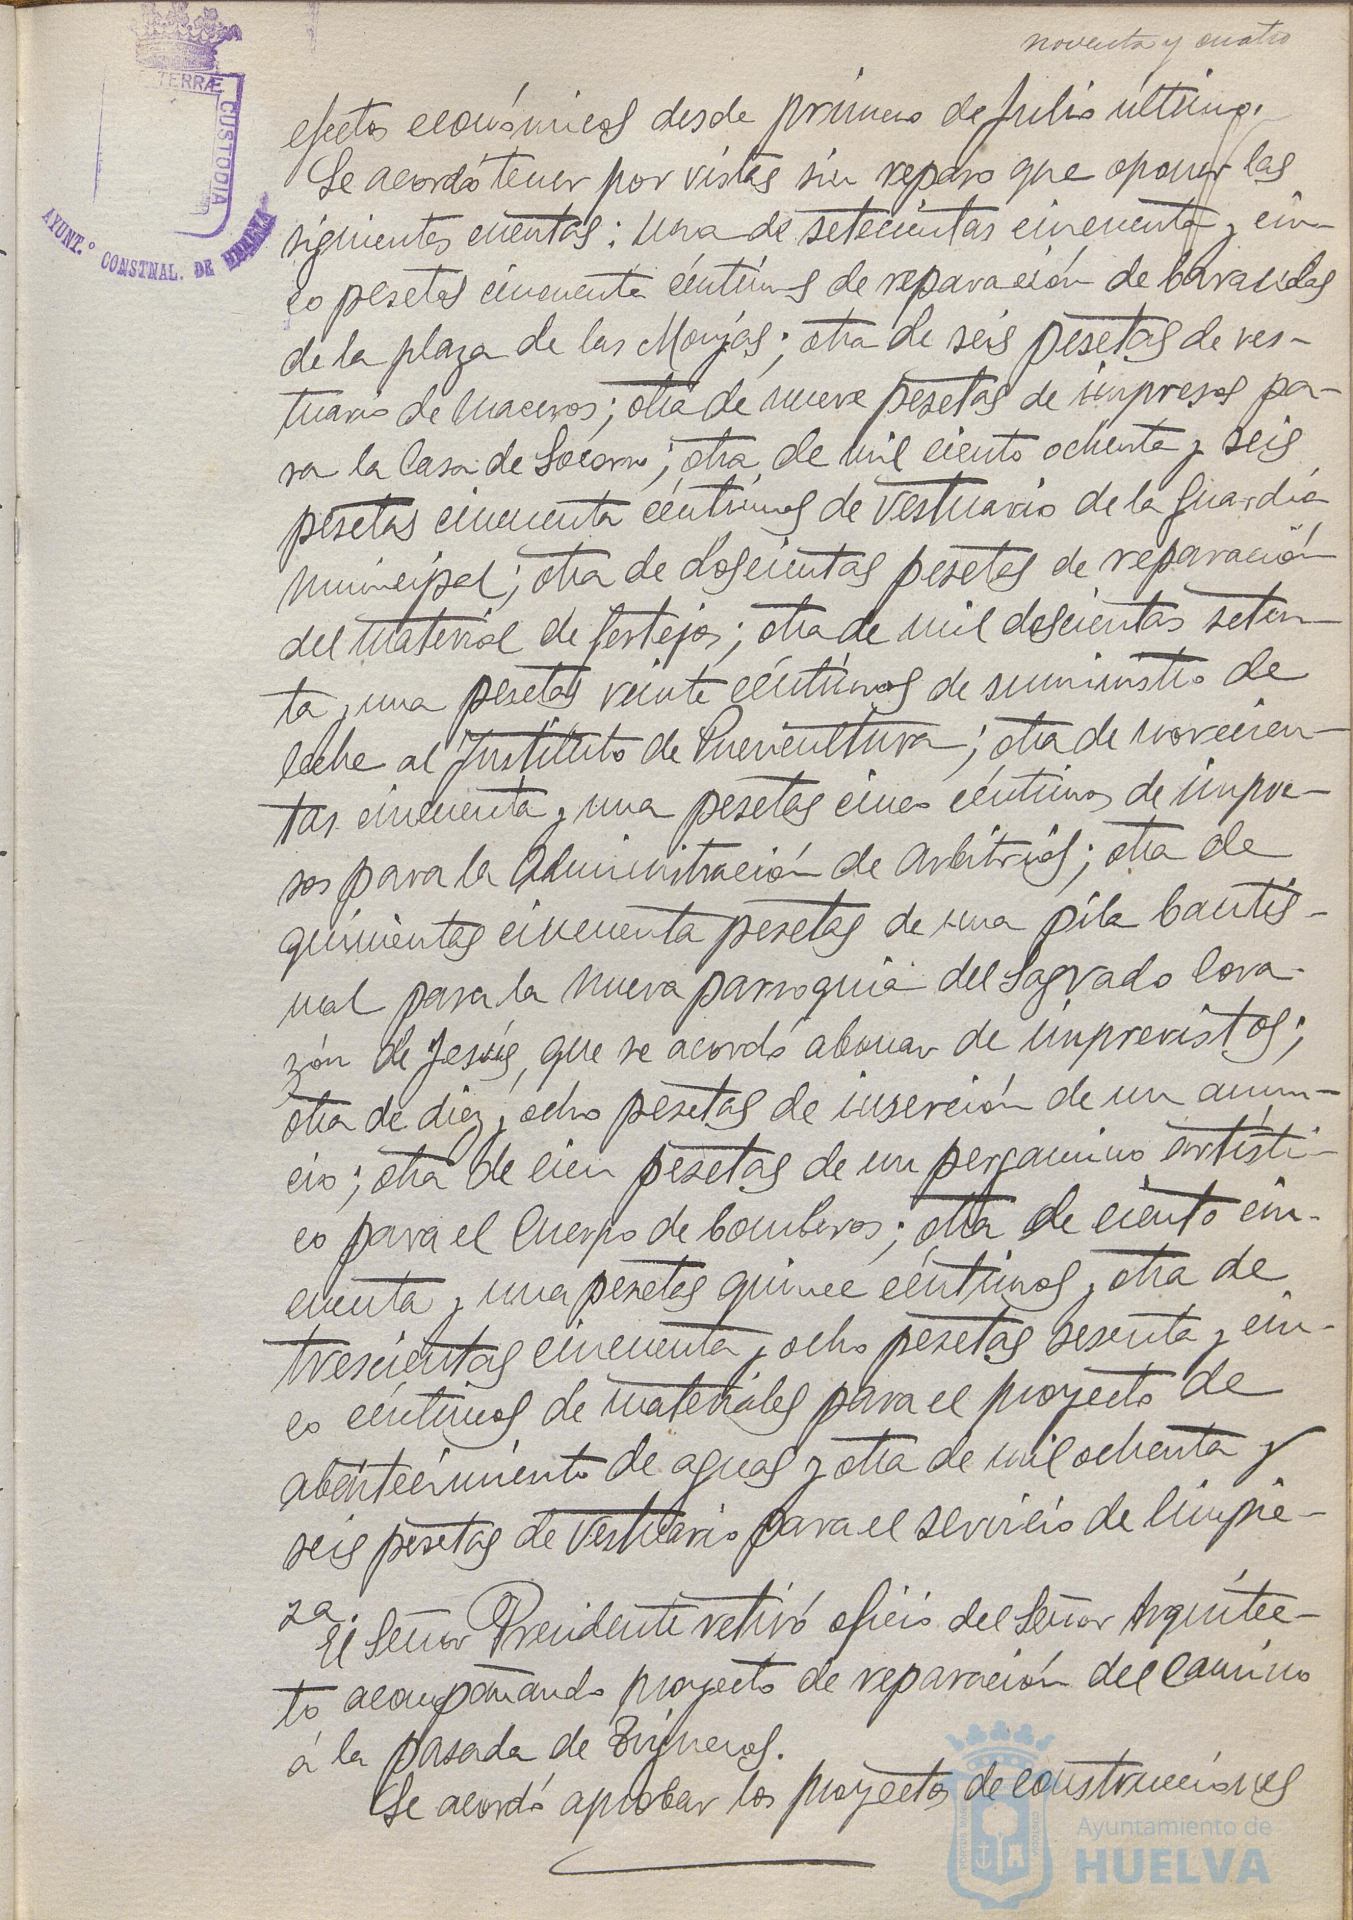 noventa y cuatro
TERRÆ
CUSTODIA
AYUNT.º CONSTNAL. DE HUELVA
efectos económicos desde primero de Julio último.
Se acordó tener por vistas sin reparo que oponer las
siguientes cuentas: una de setecientas cincuenta y cin-
co pesetas cincuenta céntimos de reparación de barandas
de la plaza de las Monjas; otra de seis pesetas de ves-
tuario de maceros; otra de nueve pesetas de impresos pa-
ra la Casa de Socorro; otra de mil ciento ochenta y seis
pesetas cincuenta céntimos de vestuario de la Guardia
Municipal; otra de doscientas pesetas de reparación
del material de festejos; otra de mil doscientas seten-
ta y una pesetas veinte céntimos de suministro de
leche al Instituto de Puericultura; otra de novecien-
tas cincuenta y una pesetas cinco céntimos de impre-
sos para la Administración de Arbitrios; otra de
quinientas cincuenta pesetas de una pila bautis-
mal para la nueva parroquia del Sagrado Cora-
zón de Jesús, que se acordó abonar de imprevistos;
otra de diez y ocho pesetas de inserción de un anun-
cio; otra de cien pesetas de un pergamino artísti-
co para el Cuerpo de bomberos; otra de ciento cin-
cuenta y una pesetas quince céntimos y otra de
trescientas cincuenta y ocho pesetas sesenta y cin-
co céntimos de materiales para el proyecto de
abastecimiento de aguas y otra de mil ochenta y
seis pesetas de vestuario para el servicio de limpie-
za.
El Señor Presidente retiró oficio del Señor Arquitec-
to acompañando proyecto de reparación del camino
á la pasada de Trigueros.
Se acordó aprobar los proyectos de construcciones
Ayuntamiento de
HUELVA